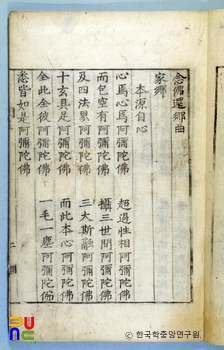 念佛還鄉曲
家鄉
本源自心
心爲心爲阿彌陀佛 超過性相阿彌陀佛
而包空有阿彌陀佛 攝三世間阿彌陀佛
及四法界阿彌陀佛 三大斯融阿彌陀佛
十玄具足阿彌陀佛 而此本心阿彌陀佛
全此全彼阿彌陀佛 一毛一塵阿彌陀佛
悉皆如是阿彌陀佛
二
ⓒ 한국학중앙연구원